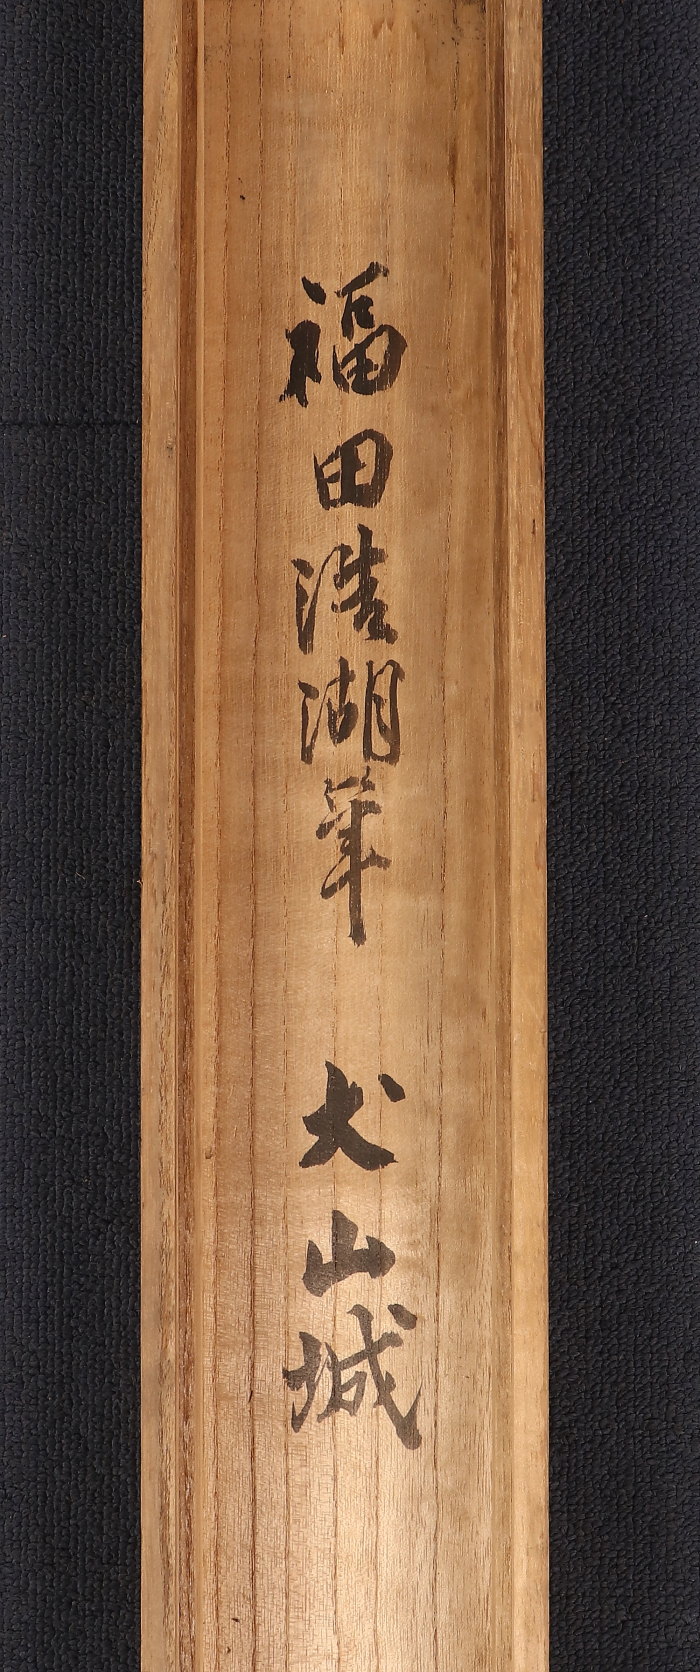 福田浩湖筆 犬山城